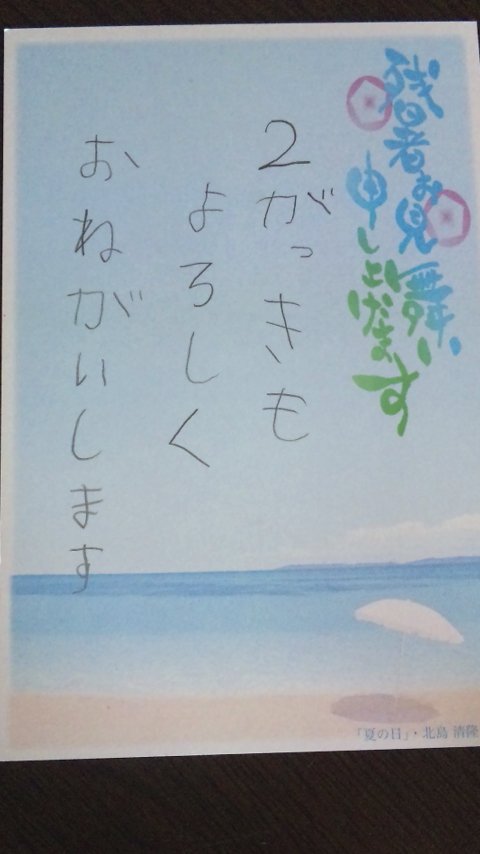 残暑お見舞い
申し上げます
2がっきも
よろしく
おねがいします
「夏の日」・北島 清隆